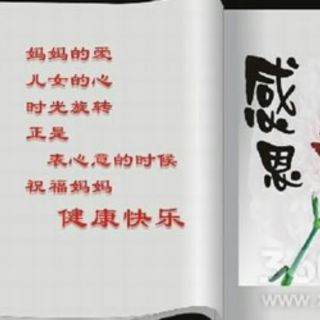 妈妈的爱
儿女的心
时光旋转
正是
表心意的时候
祝福妈妈
健康快乐
感恩